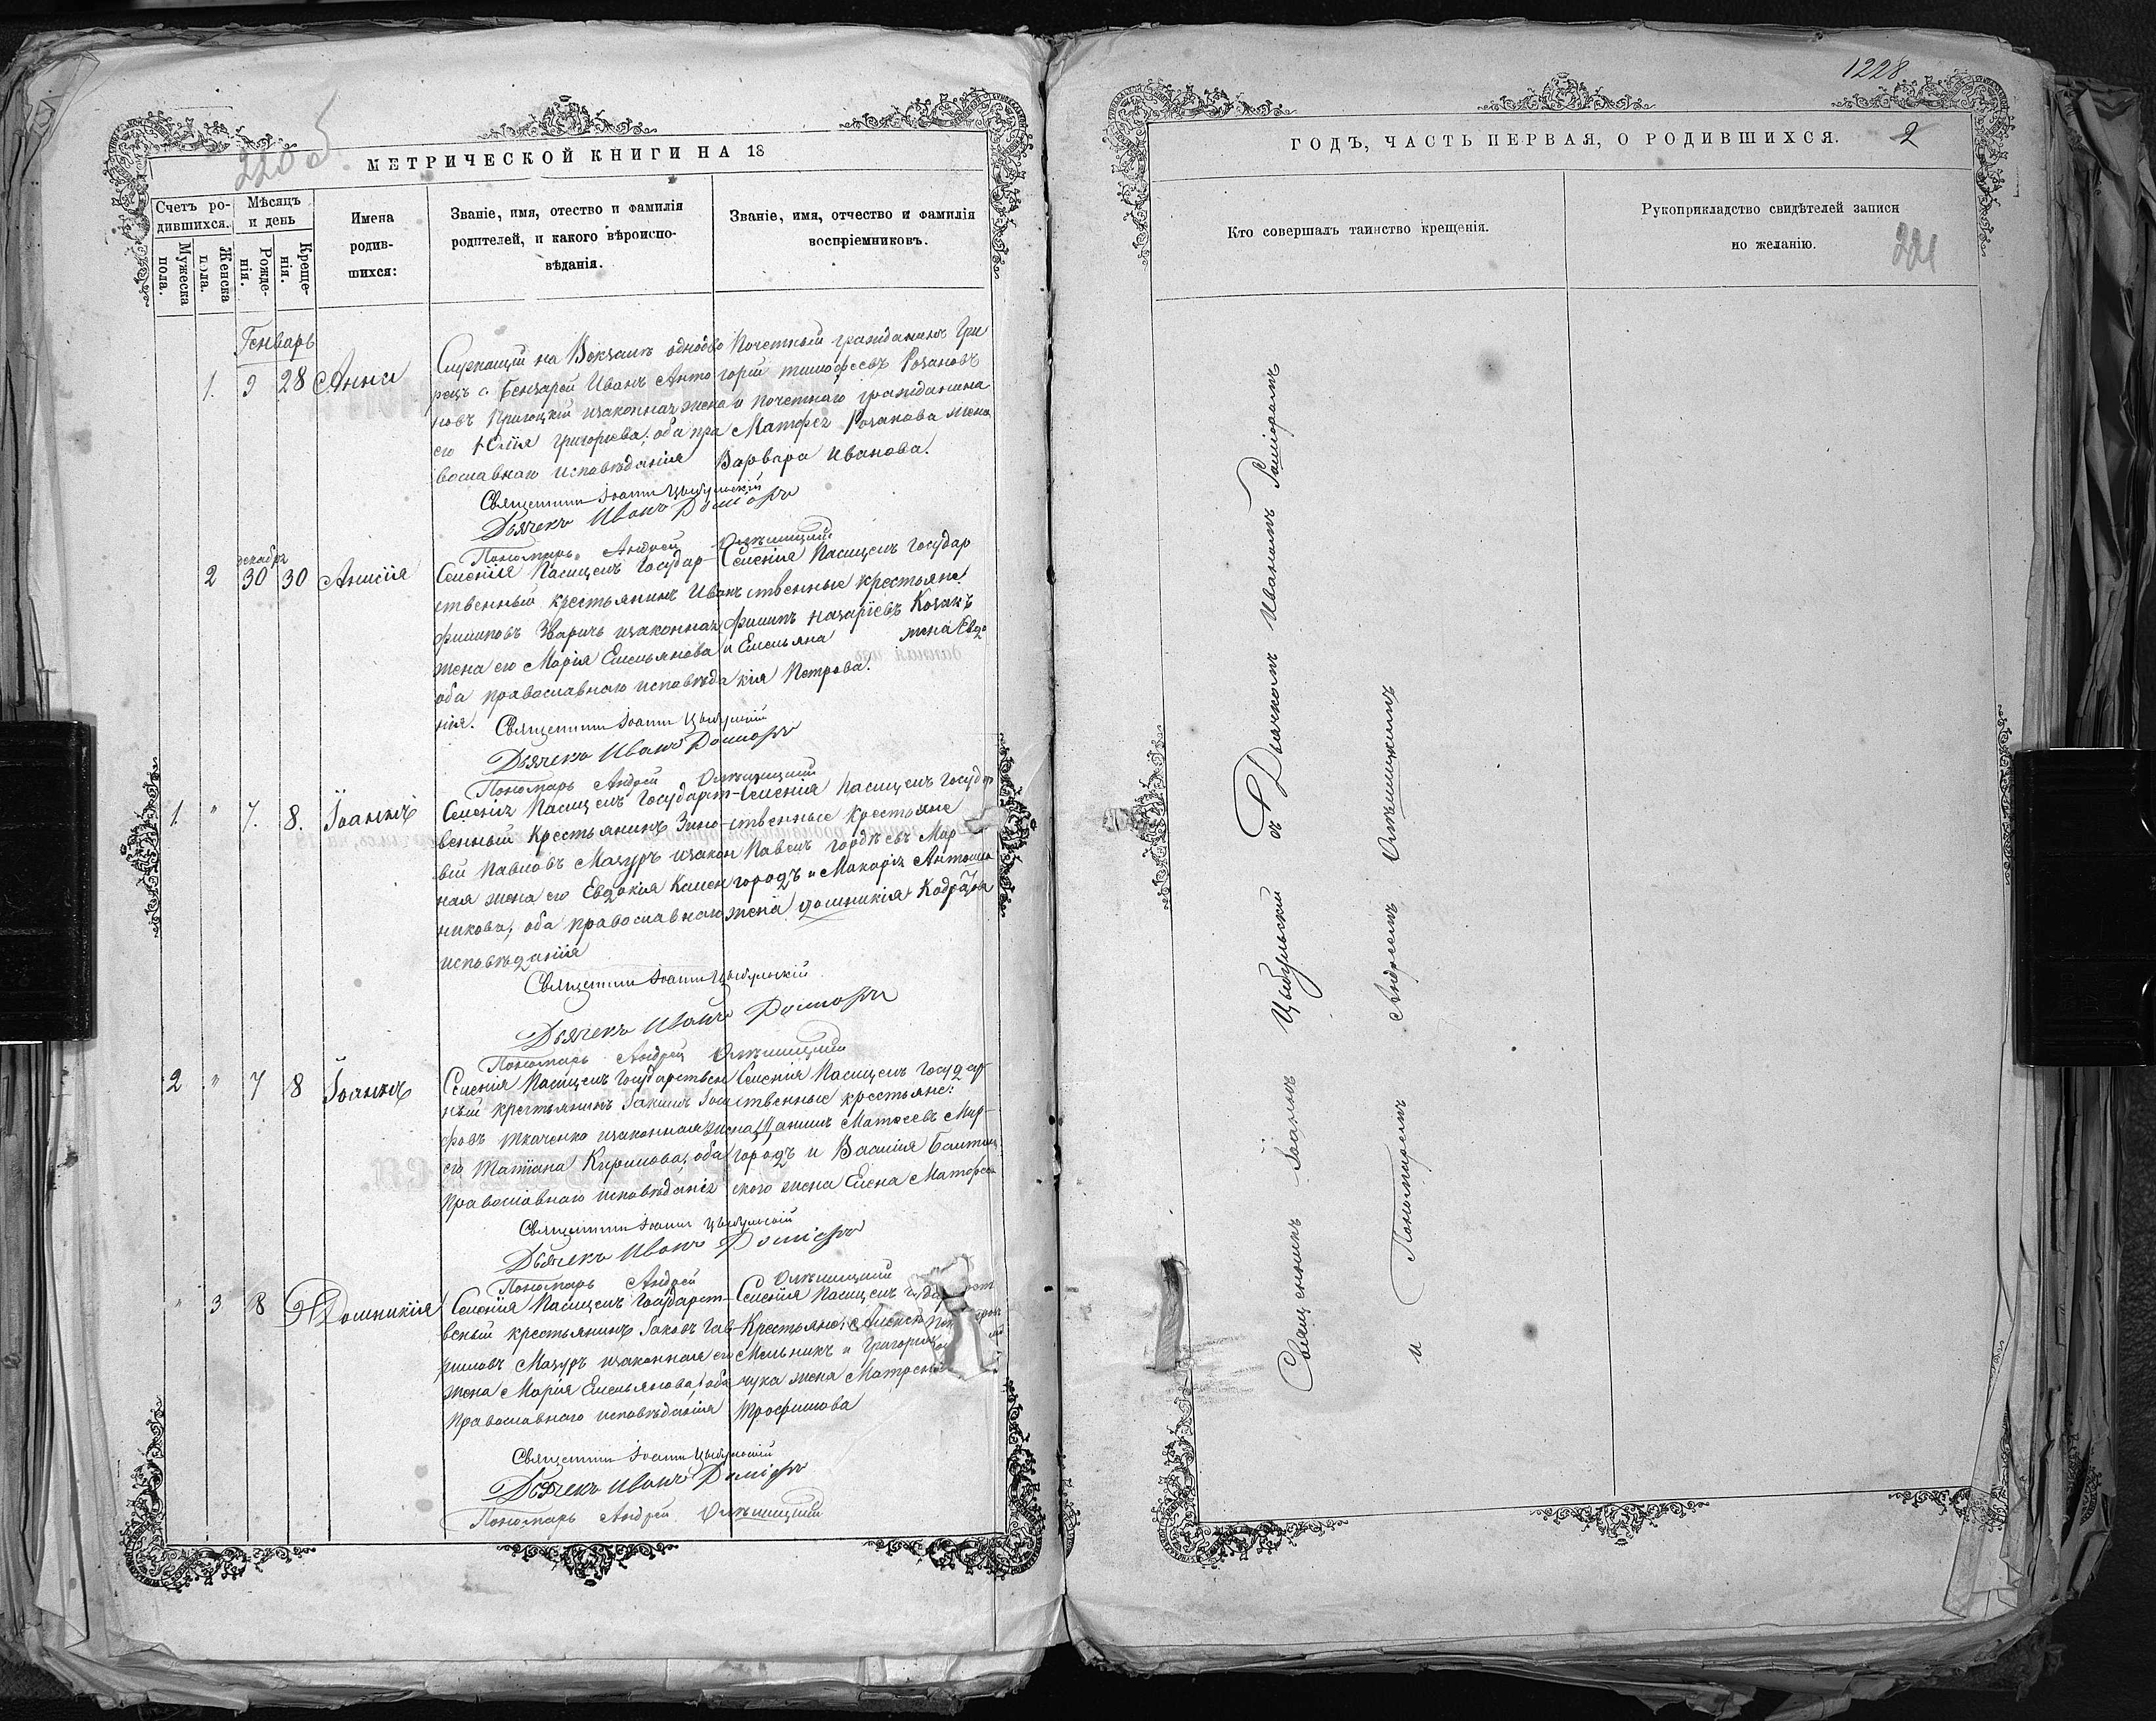 220 об
МЕТРИЧЕСКОЙ КНИГИ НА 18
Счетъ ро-
дившихся.
Мужеска
пола.
Женска
пола.
Мѣсяцъ
и день
Рожде-
нія.
Креще-
нія.
Имена
родив-
шихся:
Званіе, имя, отество и фамилія
родителей, и какого вѣроиспо-
вѣданія.
Званіе, имя, отчество и фамилія
воспріемниковъ.
Генварь
1. 9 28 Анна
Служащій на Вокзалѣ
рецъ с. Бензарей Иванъ Анто
новъ изаконная жена
его Юлія Григорьева, оба пра
вославнаго исповѣданія
Почетный гражданинъ Гри
горій Тимофеевъ Розановъ
и почетнаго гражданина
Матфея Розанова жена
Варвара Иванова.
Священникъ Іоаннъ Цыбульскій
Дьячекъ Иванъ
Пономарь Андрей
декабря
2 30 30 Анисія
Селенія Пасицелъ Государ-
ственный крестьянинъ Иванъ
Филиповъ Зваричъ изаконная
жена его Марія Емельянова
оба православнаго исповѣда
нія.
Селенія Пасицелъ Государ
ственные крестьяне:
Филипъ Назаріевъ Козакъ
и Емельяна жена Евдо
кія Петрова.
Священникъ Іоаннъ Цыбульскій
Дьячекъ Иванъ
Пономарь Андрей
1. " 7. 8. Іоаннъ
Селенія Пасицелъ Государст-
венный Крестьянинъ Зино-
вій Павловъ Мазуръ изакон
ная жена его Евдокія Климен
никова, оба православнаго
исповѣданія
Селенія Пасицелъ Государ
ственные Крестьяне
Павелъ Гордѣевъ Мар
городъ и Макарія Антошка
жена Домникія Кодратова
Священникъ Іоаннъ Цыбульскій
Дьячекъ Иванъ
Пономарь Андрей
2 " 7 8 Іоаннъ
Селенія Пасицелъ Государствен
ный крестьянинъ Іакимъ Іоси
фовъ Ткаченко изаконная жена
его Татіана Кирилова, оба
Православнаго исповѣданія
Селенія Пасицелъ Государ
ственные крестьяне:
Даніилъ Матфеевъ Мир-
городъ и Василія Балтиц
кого жена Елена Матфеева
Священникъ Іоаннъ Цыбульскій
Дьячекъ Иванъ
Пономарь Андрей
" 3 8 9 Домникія
Селенія Пасицелъ Государст-
венный крестьянинъ Іаковъ Гав-
риловъ Мазуръ изаконная его
жена Марія Емельянова, оба
Православнаго исповѣданія
Селенія Пасицелъ
Крестьяне:
Мельникъ и Григорія
чука жена Матрена
Трофимова
Священникъ Іоаннъ Цыбульскій
Дьячекъ Иванъ
Пономарь Андрей
1228
ГОДЪ, ЧАСТЬ ПЕРВАЯ, О РОДИВШИХСЯ.
2
Кто совершалъ таинство крещенія.
Рукоприкладство свидѣтелей записи
по желанію.
221
Священникъ Іоаннъ Цыбульскій съ Дьячкомъ Иваномъ
и Пономаремъ Андреемъ